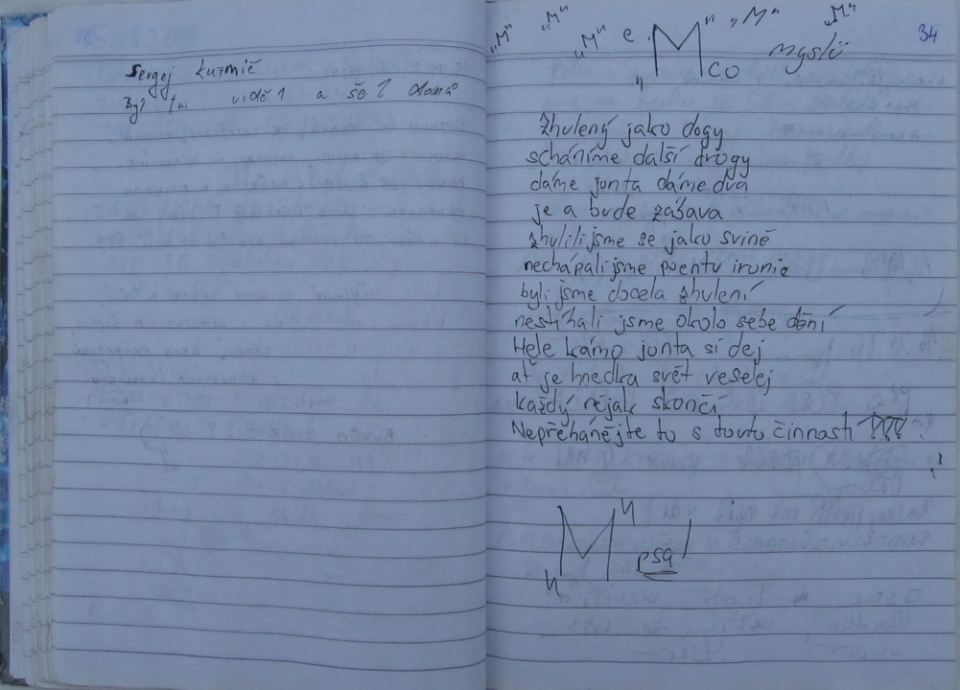 Sergej Kuzmič
byl tu viděl a šel domů
34
„M" „M" „M" e „M" „M" „M"
co myslíš
Zhulený jako dogy
scháníme další drogy
dáme jonta dáme dva
je a bude zábava
zhulili jsme se jako svině
nechápali jsme poentu ironie
byli jsme docela zhulení
nestíhali jsme okolo sebe dění
Hele kámo jonta si dej
ať je hnedka svět veselej
každý nějak skončí
Nepřehánějte to s touto činností
„M" psal